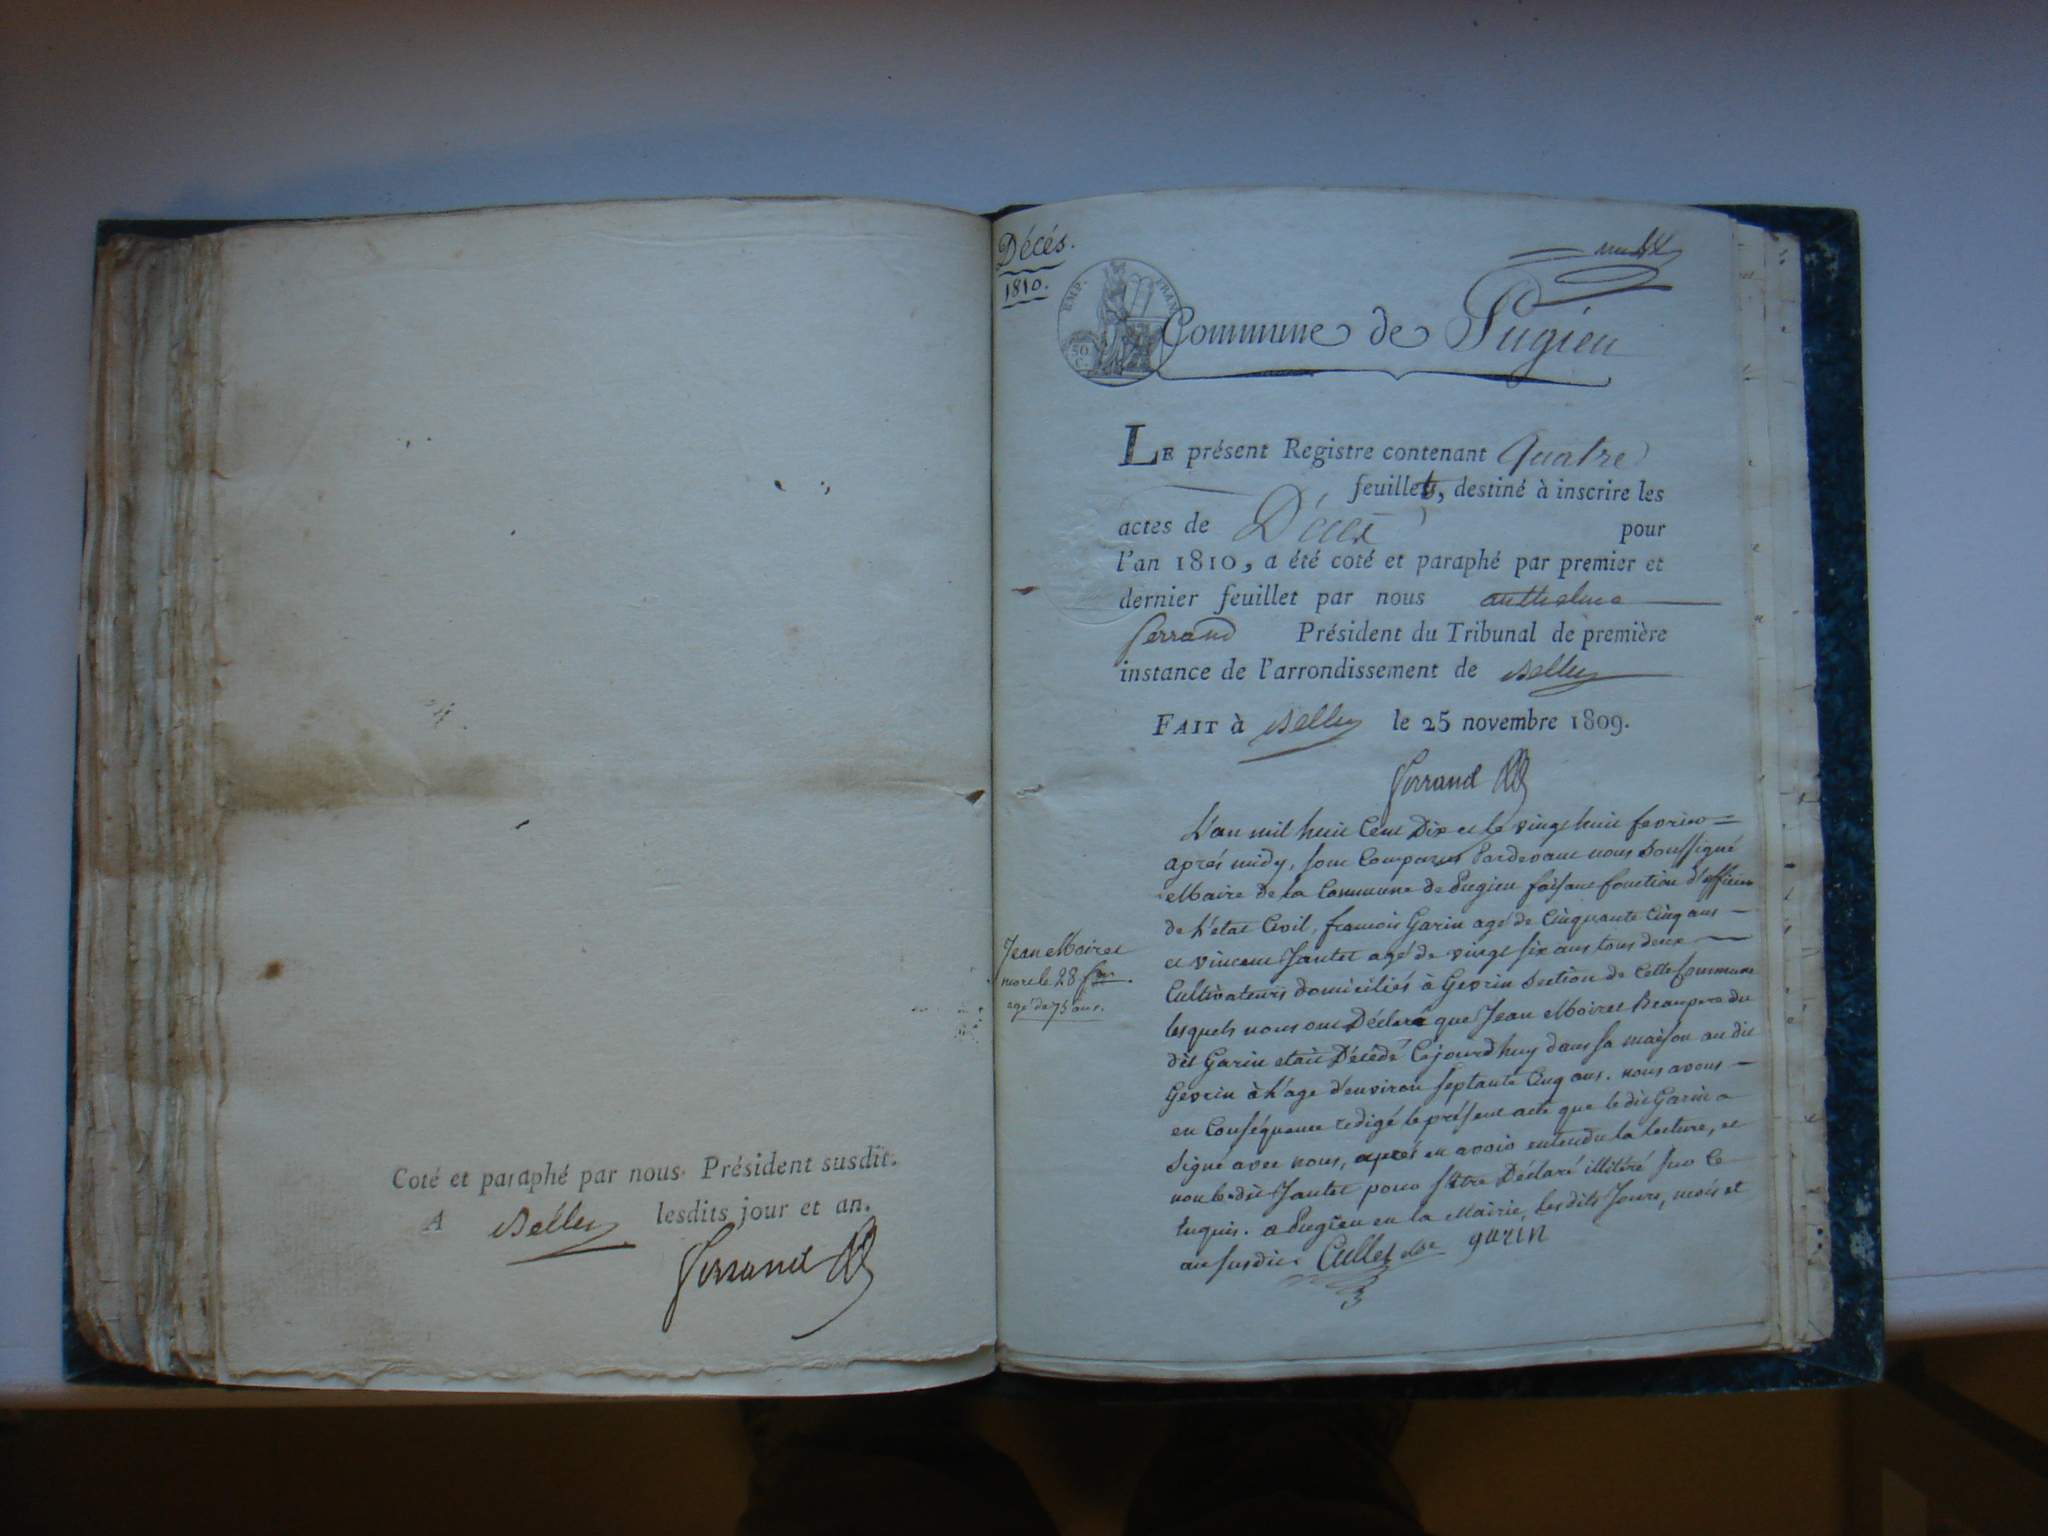 Coté et paraphé par nous Président susdit.
A Belley lesdits jour et an.
Ferrand
Décés.
1810.
EMP. FRAN
50
C.
Commune de Pugieu
LE présent Registre contenant quatre
feuillets, destiné à inscrire les
actes de Décès pour
l'an 1810, a été coté et paraphé par premier et
dernier feuillet par nous anthelme
ferrand Président du Tribunal de première
instance de l'arrondissement de Belley
FAIT à Belley le 25 novembre 1809.
Ferrand
Jean Moiret
mort le 28 fer
agé de 75 ans.
L'an mil huit Cent Dix et le vingt huit fevrier
aprés midy, sont Comparus Pardevant nous Soussigné
Maire de la Commune de Pugieu faisant fonction d'officier
de L'état Civil, francois Garin agé de Cinquante Cinq ans
et vincent Jantet agé de vingt six ans tous deux
Cultivateurs domiciliés à Gevrin Section de Cette Commune
lesquels nous ont Déclaré que Jean Moiret Beaupere du
dit Garin etait Décédé Cejourdhuy dans sa maison au dit
Gevrin à L'age d'environ septante Cinq ans. nous avons
en Conséquence redigé le présent acte que ledit Garin a
Signé avec nous, aprés en avoir entendu la lecture, et
non ledit Jantet pour s'être Déclaré illitéré sur Ce
requis. a Pugieu en la Mairie, les dits Jours, mois et
an susdit. Cullet garin